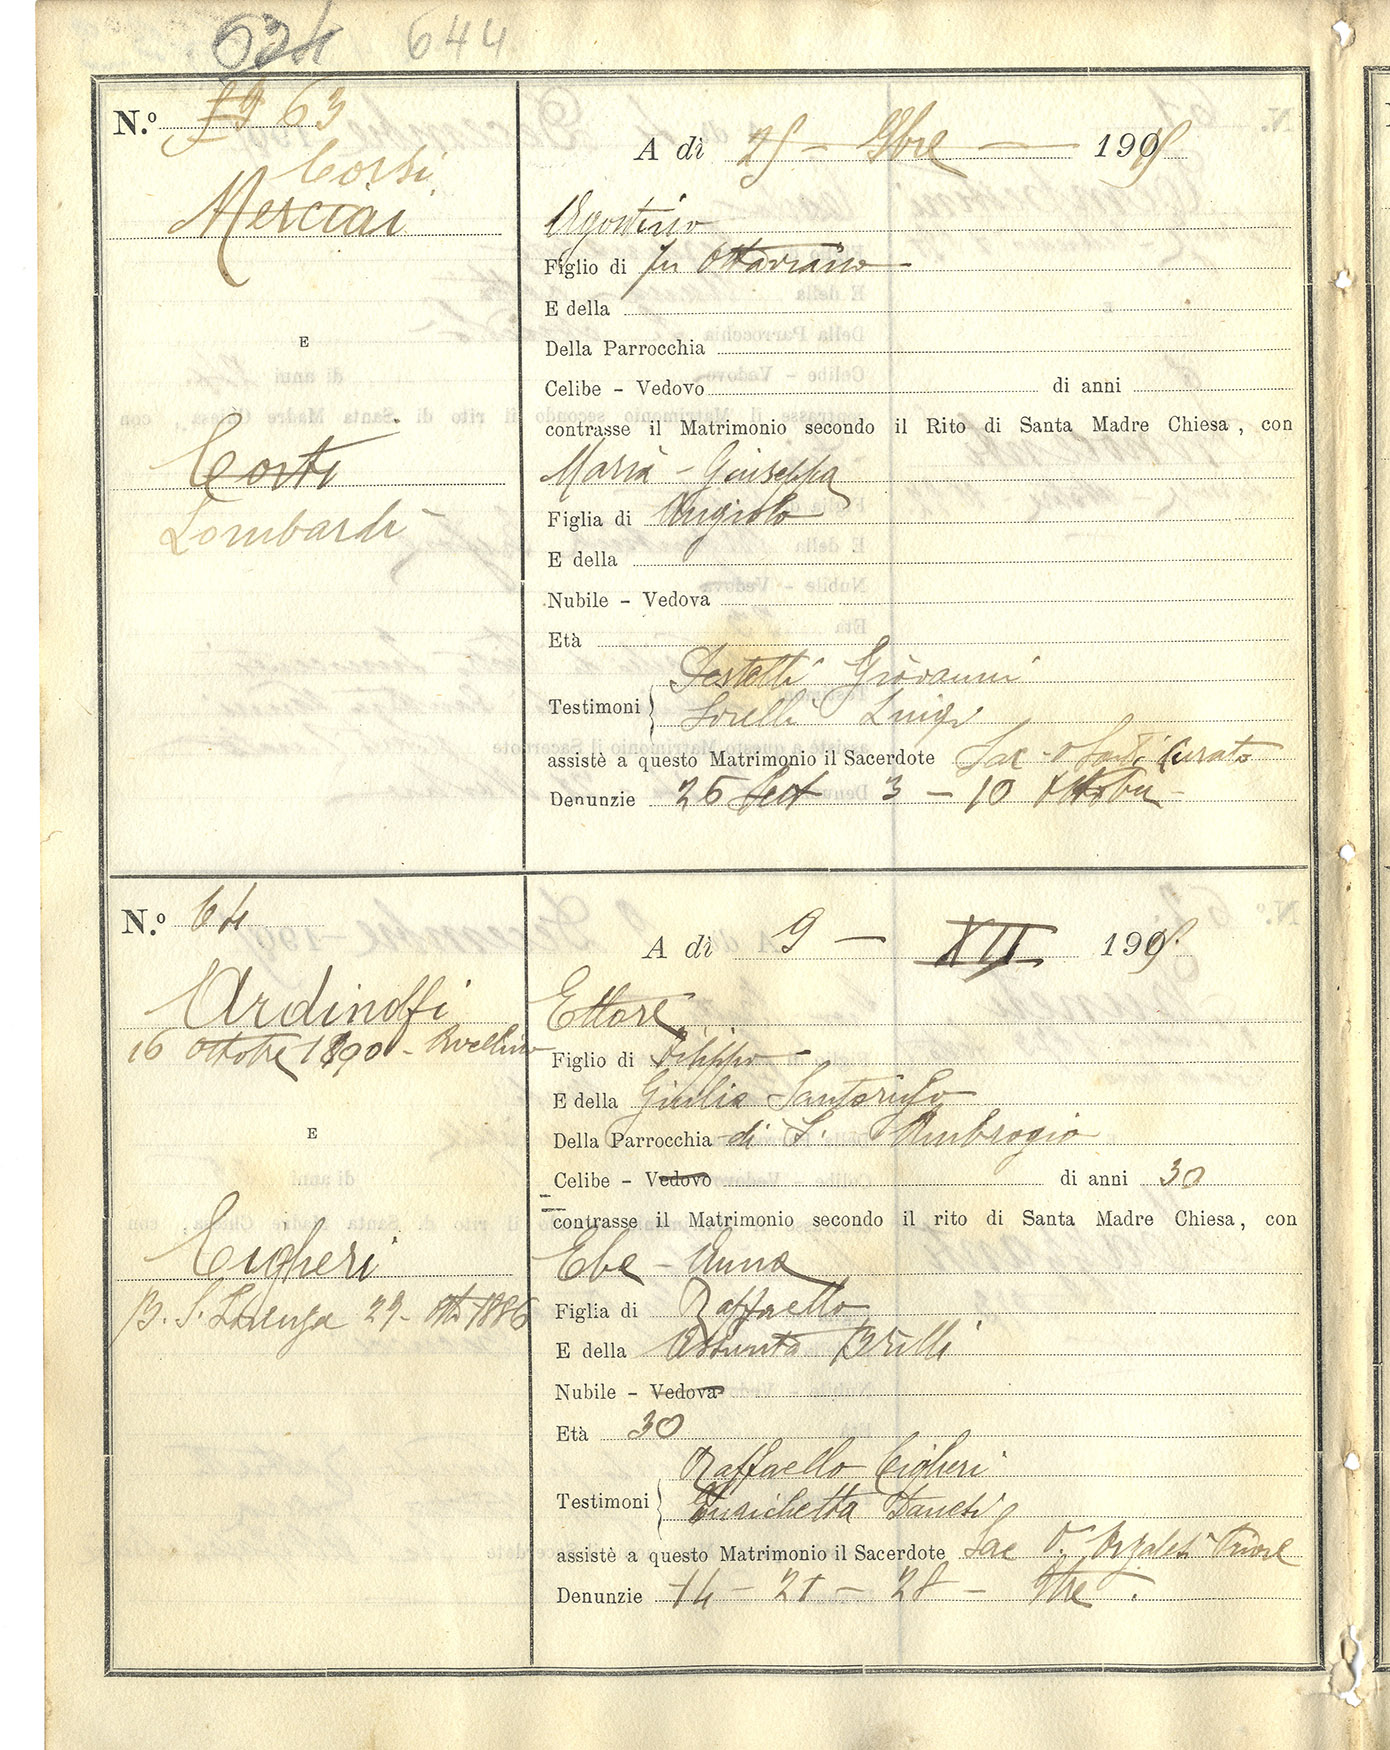 624 644
N.º 59 63
Corsi
Merciai
E
Corti
Lombardi
A dì 25 - 9bre - 190
Agostino
Figlio di fu Ottaviano
E della
Della Parrocchia
Celibe - Vedovo di anni
contrasse il Matrimonio secondo il Rito di Santa Madre Chiesa, con
Maria - Giuseppa
Figlia di Angiolo
E della
Nubile - Vedova
Età
Giovanni
Testimoni
Sorelli Luigi
assistè a questo Matrimonio il Sacerdote Sac Curato
Denunzie 26 Sett 3 - 10 Ottobre
N.º 64
Ardinolfi
16 Ottobre 1890 - Avellino
E
Cigheri
B. S. Lorenzo 29 - Ott 1886
A dì 9 - XII 190
Ettore
Figlio di Filippo
E della Giulia Santorufo
Della Parrocchia di S. Ambrogio
Celibe - Vedovo di anni 30
contrasse il Matrimonio secondo il rito di Santa Madre Chiesa, con
Ebe - Anna
Figlia di Raffaello
E della Assunta Brilli
Nubile - Vedova
Età 30
Raffaello Cigheri
Testimoni
Enrichetta Danesi
assistè a questo Matrimonio il Sacerdote Sac O. Orzalesi Priore
Denunzie 14 - 21 - 28 - 9bre.